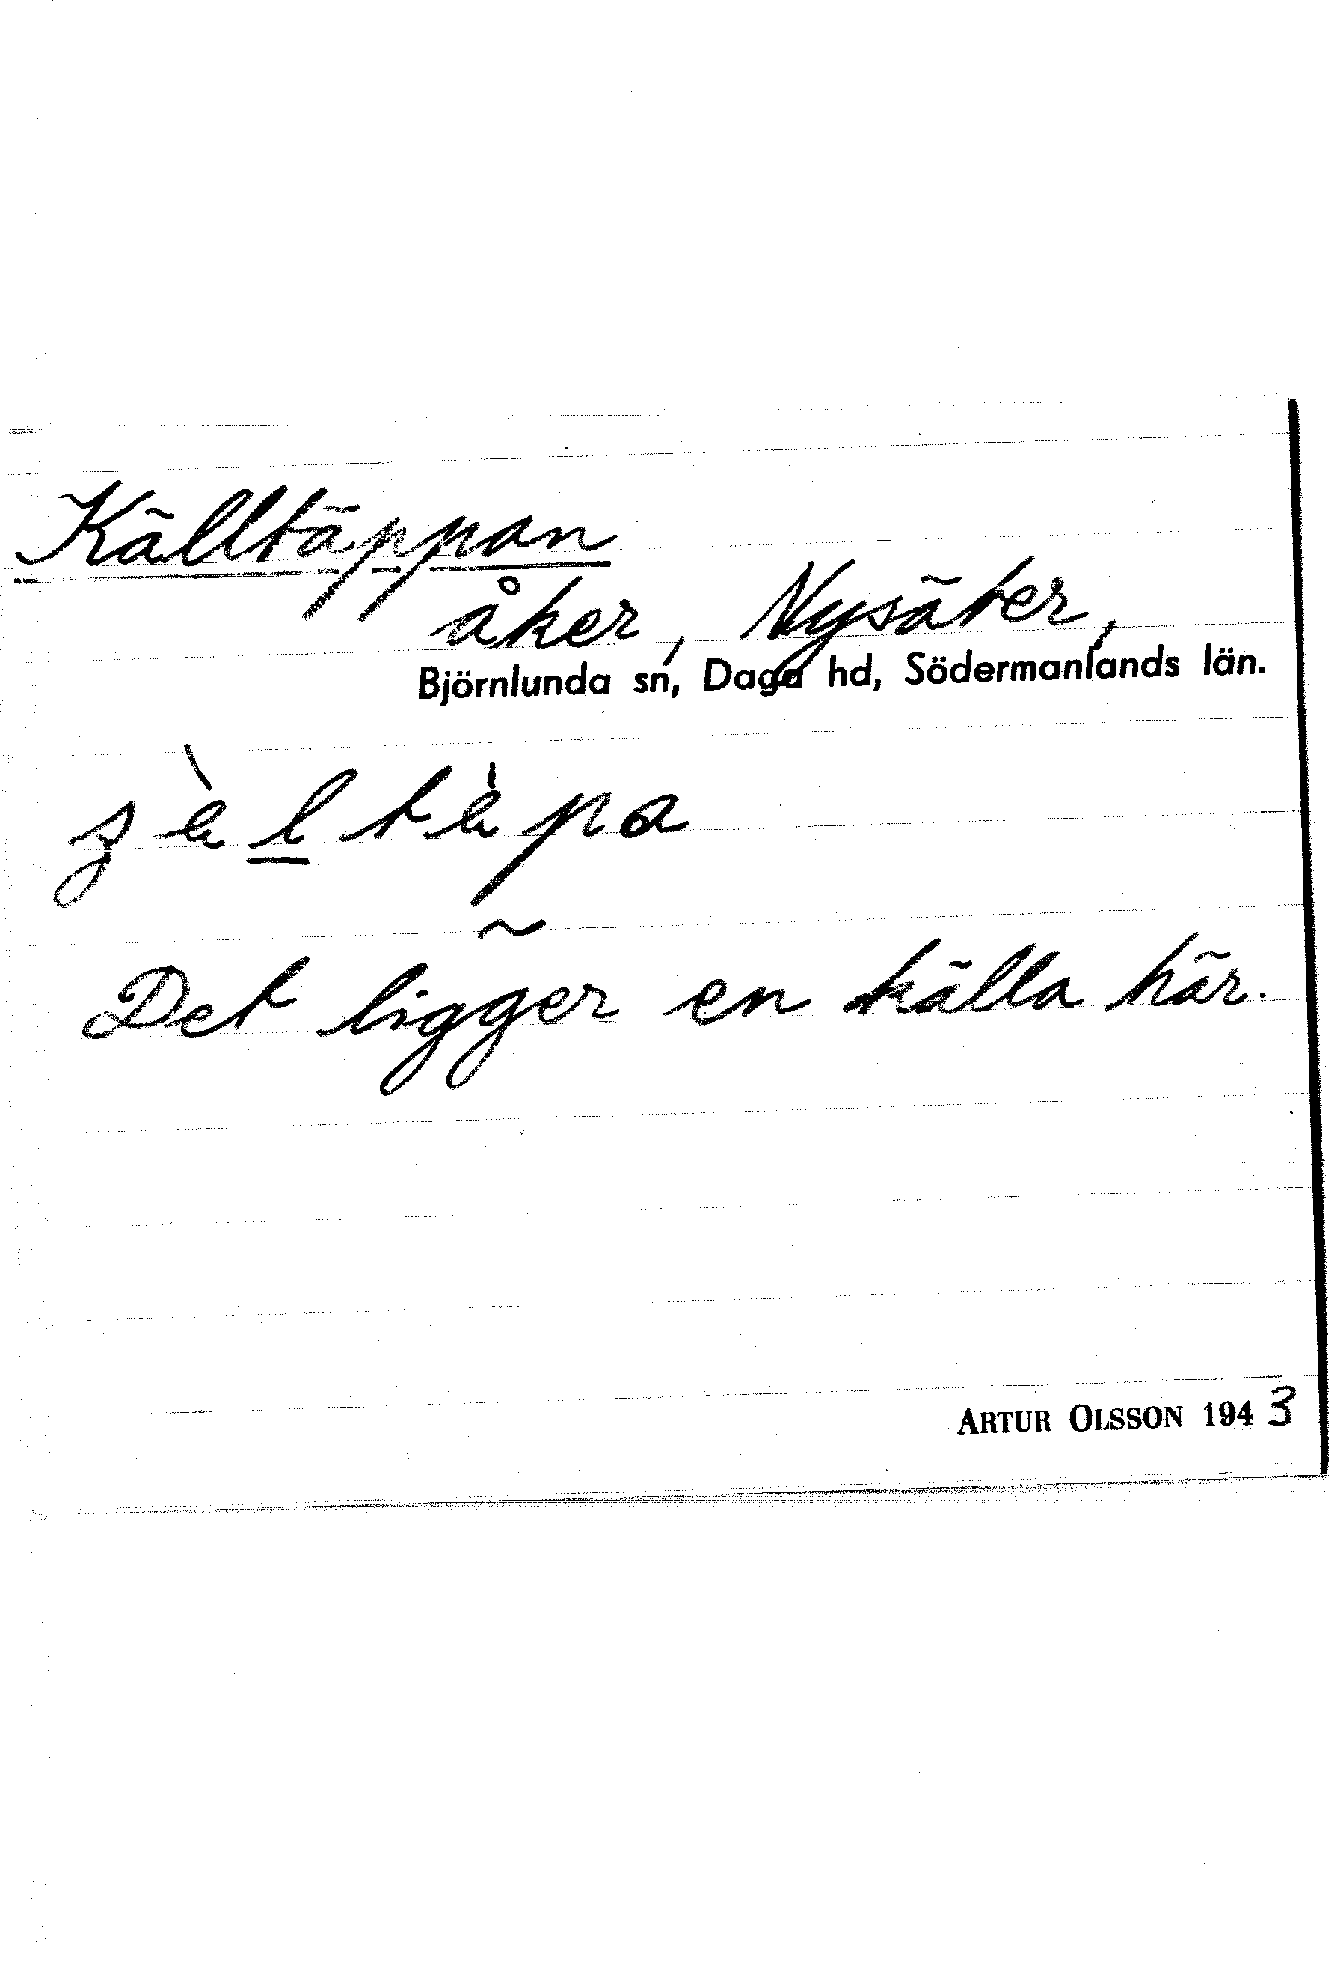 Källtäppan
åker, Nysäter,
Björnlunda sn, Daga hd, Södermanlands län.
Det ligger en källa här.
ARTUR OLSSON 1943